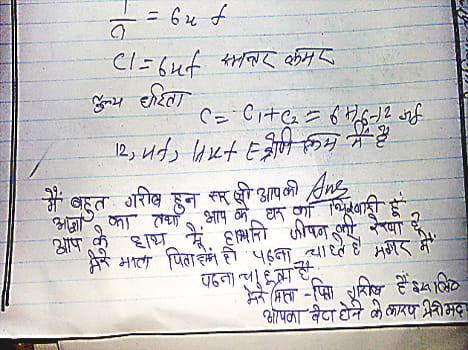 1/C1 = 6uf
C1 = 6uf समान्तर क्रम
तुल्य धारिता
C = C1+C2 = 6+6-12 uf
12, uf, 4uf श्रेणी क्रम में है
Ans
मैं बहुत गरीब हुन सर जी आपकी
आज्ञा का तथा आप के घर का भिखारी हूँ
आप के हाथ में हामारी जीवन की रेखा है
मेरे माता पिता हमें ही पढ़ना चाहते है मगर मैं
पढना चाहता है
मेरे माता-पिता गरीब हैं इसलिए
आपका बेटा होने के कारण मेरी मद